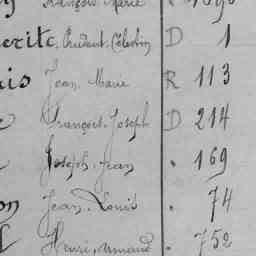 François Marie
erite, Prudent, Célestin D 1
is Jean Marie R 113
François-Joseph D 214
Joseph-Jean . 169
on Jean-Louis . 74
Henri, Armand . 752